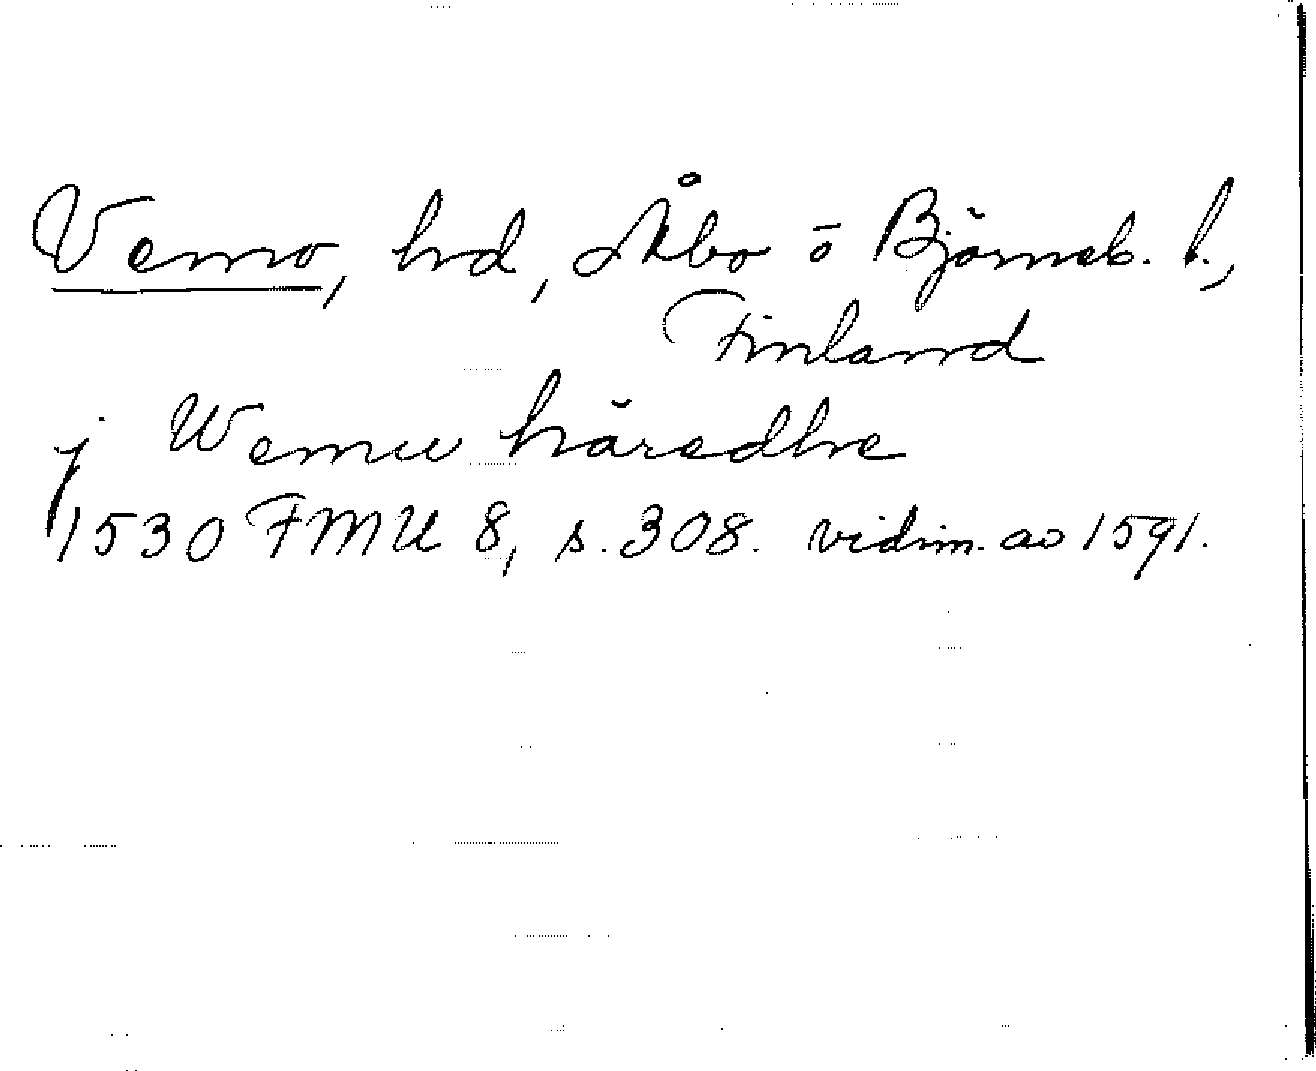 Vemo, hd, Åbo o Björneb. l.,
Finland
j Wemu häradhe
1530 FMU 8, s. 308. vidim. av 1591.